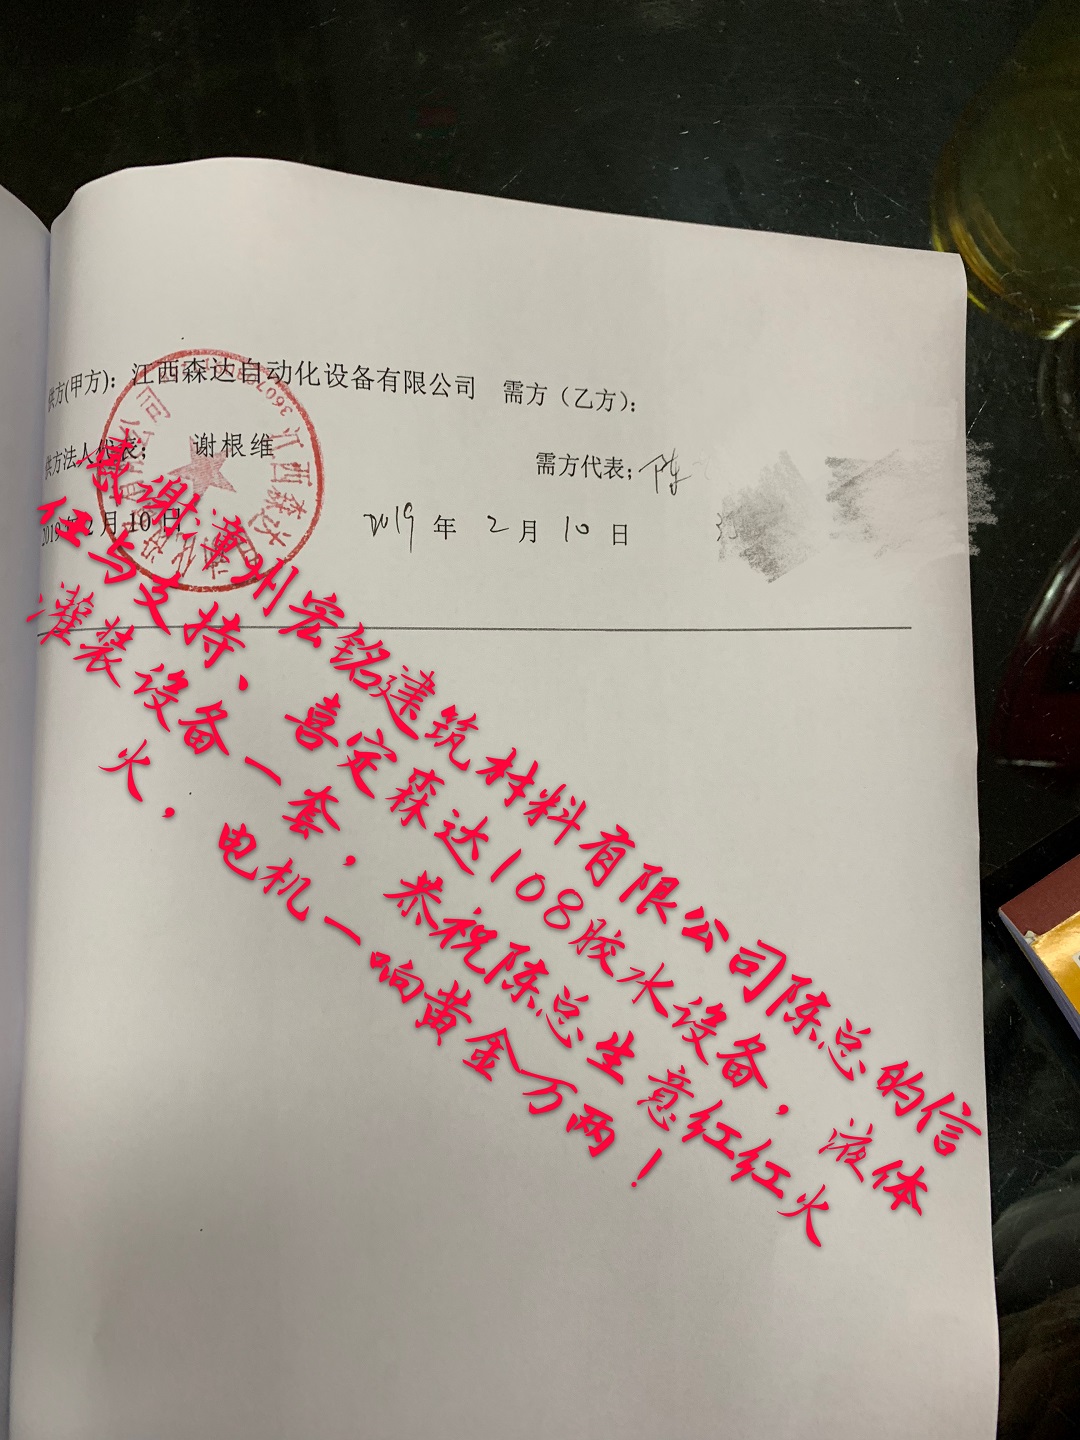 供方(甲方)：江西森达自动化设备有限公司 需方（乙方）：
供方法人代表； 谢根维 需方代表；陈
2019年2月10日 2019 年 2 月 10 日
江西森达
感谢漳州宏铭建筑材料有限公司陈总的信
任与支持、喜定森达108胶水设备，液体
灌装设备一套，恭祝陈总生意红红火
火，电机一响黄金万两！